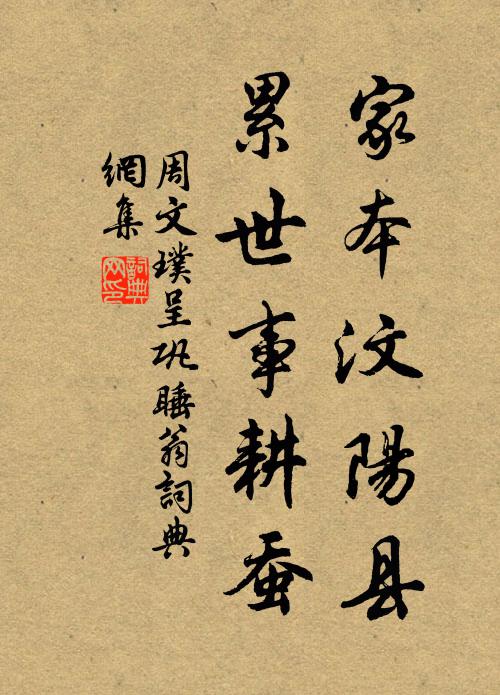 家本汶陽县
累世事耕蚕
周文璞呈巩睡翁詞典
網集
詞典
网印